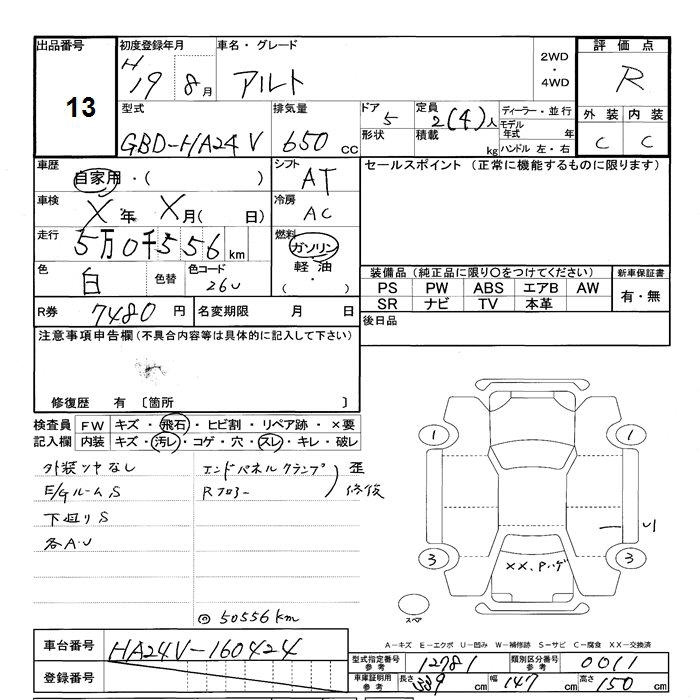 出品番号 初度登録年月 車名・グレード 2WD・4WD 評価点
13 H 19 8月 アルト R
型式 排気量 ドア 定員 ディーラー・並行 外装 内装
GBD-HA24V 650cc 5 2(4)人 モデル年式 年 C C
形状 積載 kg ハンドル 左・右
車歴 自家用・( ) シフト AT セールスポイント (正常に機能するものに限ります)
車検 X年 X月( 日) 冷房 AC
走行 5万0千556km 燃料 ガソリン 軽油 ( ・ )
色 白 色替 色コード 26U
装備品 (純正品に限り○をつけてください) 新車保証書
PS PW ABS エアB AW 有・無
SR ナビ TV 本革
R券 7480円 名変期限 月 日 後日品
注意事項申告欄(不具合内容等は具体的に記入して下さい)
修復歴 有 〔箇所 〕
検査員 FW キズ・飛石・ヒビ割・リペア跡・×要
記入欄 内装 キズ・汚レ・コゲ・穴・スレ・キレ・破レ
外装ツヤなし エンドパネルクランプ 歪
E/Gルーム S Rフロアー 修復
下廻り S
各A・U
◎50556km
1 1
U
3 3
××、P.ハゲ
スペア
A－キズ E－エクボ U－凹み W－補修跡 S－サビ C－腐食 XX－交換済
車台番号 HA24V-160424
登録番号
型式指定番号 参考 12781 類別区分番号 参考 0011
車庫証明用 参考 長さ 339cm 幅 147cm 高さ 150cm